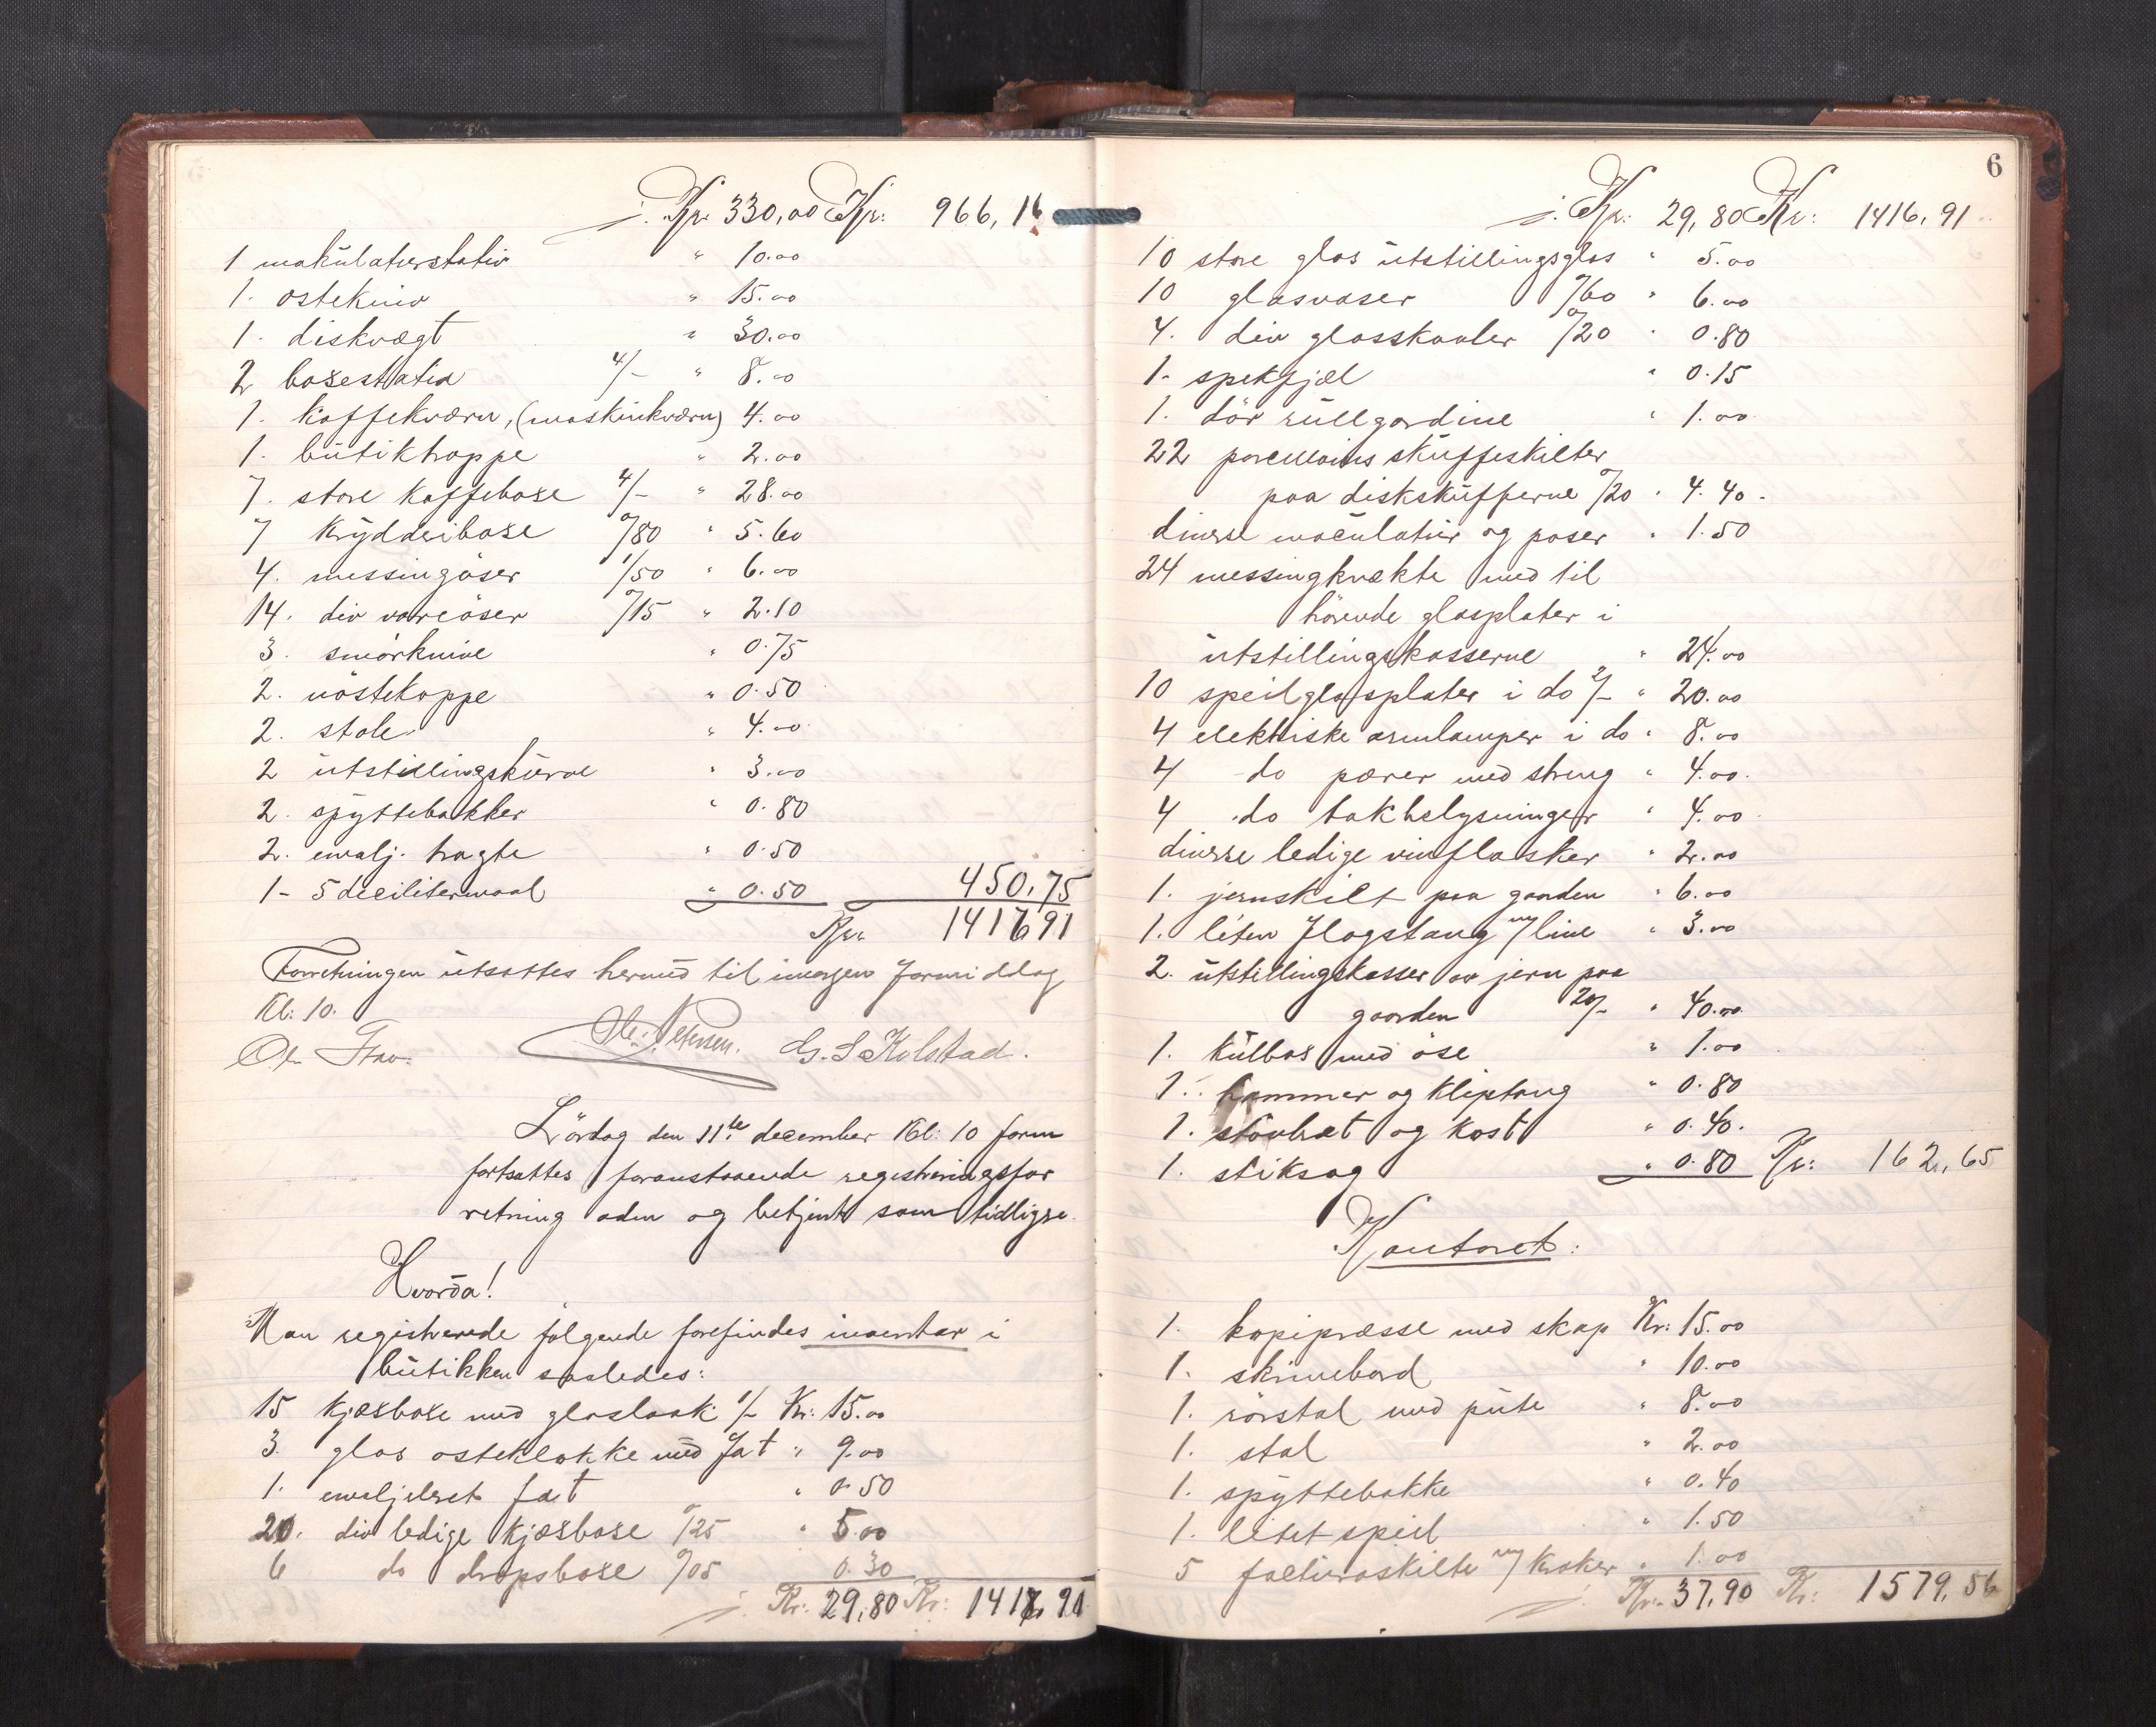 ./. Kr. 330,00 Kr: 966,16
1 makülaturstativ " 10.00
1. ostekniv " 15.00
1. diskvægt " 30.00
2 boxestativ 4/- " 8.00
1. kaffekværn, (maskinkværn) 4.00
1. bütiktrappe " 2.00
7. store kaffeboxe 4/- " 28.00
7 krydderiboxe 0/80 " 5.60
4. messingöser 1/50 " 6.00
14. div vareöser 0/15 " 2.10
3. smörknive " 0.75
2. nöstekoppe " 0.50
2. stole " 4.00
2 ütstillingskürve " 3.00
2. spyttebakker " 0.80
2. emalj. tragte " 0.50
1 - 5 decilitermaal " 0.50 450,75
Kr. 1416,91
Forretningen ütsattes hermed til imorgen formiddag
Kl: 10.
Petersen. G. S. Kolstad.
Lördag den 11te december Kl: 10 form
fortsattes foranstaaende registreringsfor
retning aden og betjent som tidligre.
Hvorda!
Man registrerede følgende forefindes inventar i
bütikken saaledes:
15 kjæxboxe med glaslaak 1/- Kr: 15.00
3. glas osteklokke med fat " 9.00
1. emaljeret fat " 0.50
20. div ledige kjæxboxe 0/25 " 5.00
6 do dropsboxe 0/05 0.30
./. Kr. 29,80 Kr: 1416,91
6
./. Kr: 29,80 Kr: 1416,91
10 store glas ütstillingsglas " 5.00
10 glasvaser 0/60 " 6.00
4. div glasskaaler 0/20 " 0.80
1. spekfjæl " 0.15
1. dör rüllgardine " 1.00
22 porcellains sküffeskilter
paa disksküfferne 0/20 " 4.40.
diverse maculatür og poser " 1.50
24 messingknekte med til
hörende glasplater i
ütstillingskasserne " 24.00
10 speilglasplater i do 2/- " 20.00
4 elektriske armlamper i do " 8.00
4 do pærer med streng " 4.00.
4 do takbelysninger " 4.00
diverse ledige vinflasker " 2.00
1. jernskilt paa gaarden " 6.00
1. liten flagstang m/line " 3.00
2. ütstillingskasser av jern paa
gaarden 20/- " 40.00
1. külbox med öse " 1.00
1. hammer og kliptang " 0.80
1. stövbræt og kost " 0.40.
1. stiksag " 0.80 Kr: 162,65
Kontoret:
1. kopipræsse med skap Kr: 15.00
1. skrivebord " 10.00
1. rörstol med püte " 8.00
1. stol " 2.00
1. spyttebakke " 0.40
1. litet speil " 1.50
5 factüraskilte m/ kroker " 1.00
./. Kr. 37,90 Kr: 1579,56